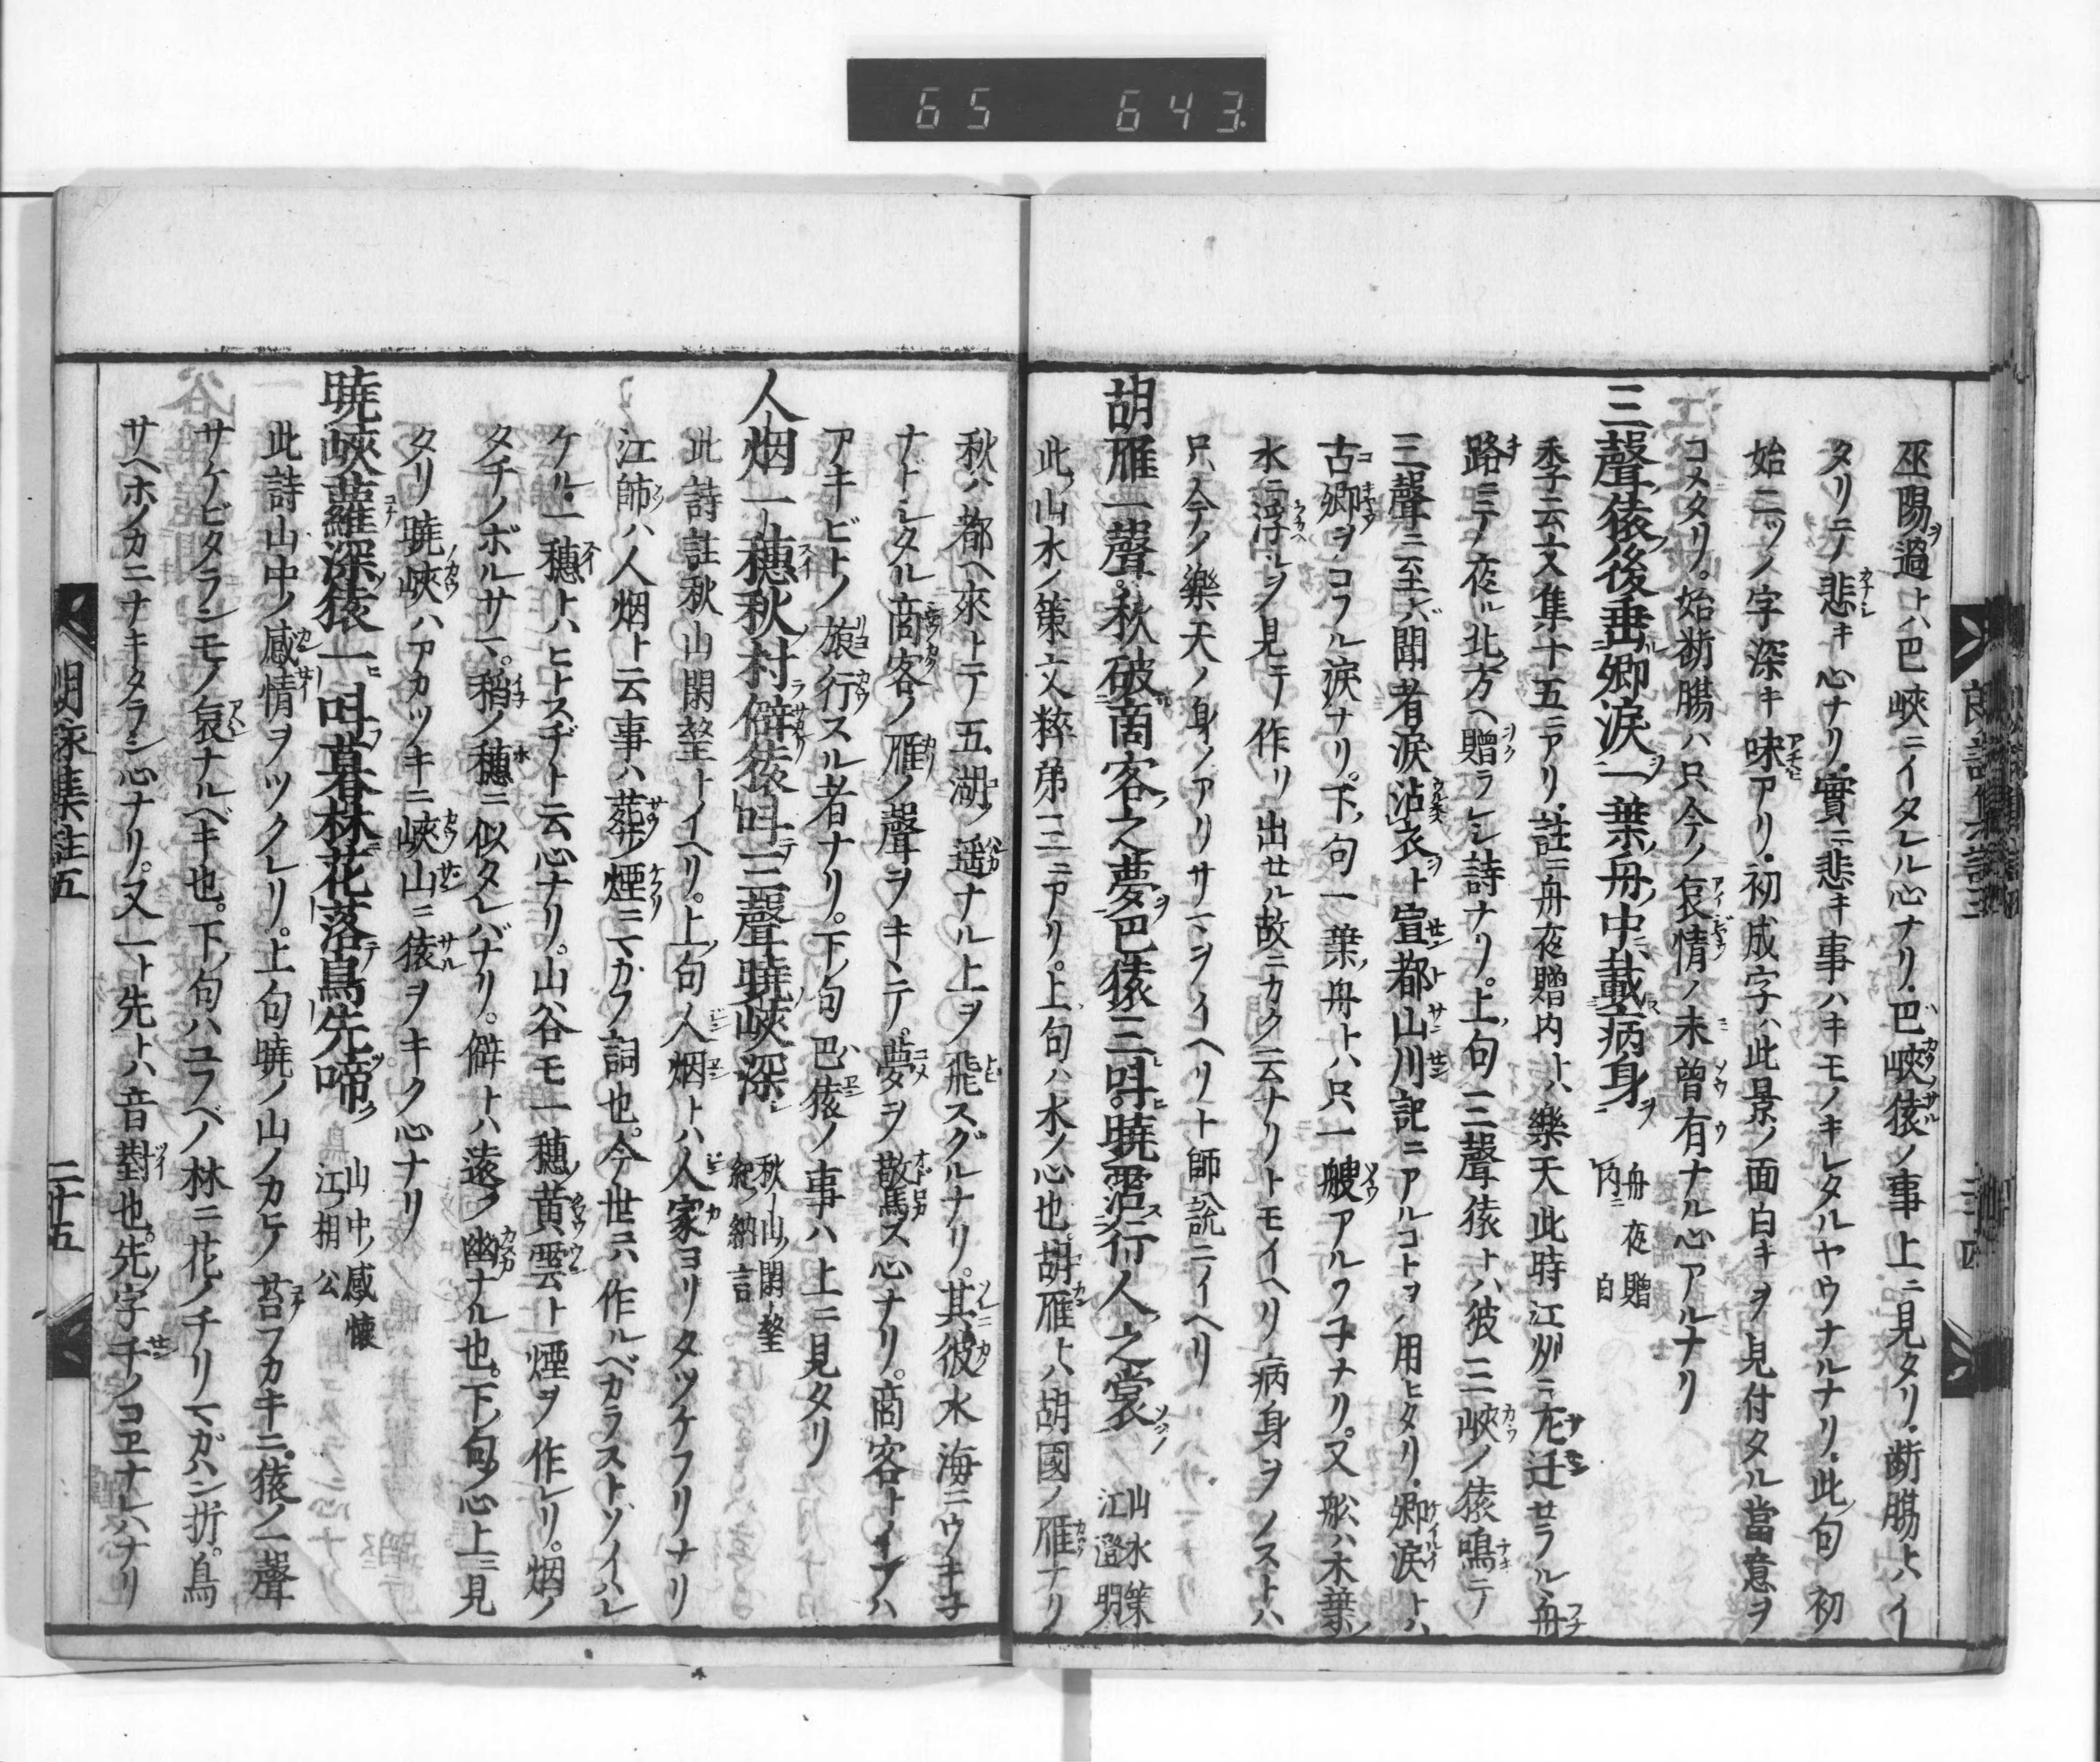 65 643
巫陽ヲ過トハ巴峽ニイタレル心ナリ．巴峽猿ノ事上ニ見タリ．断膓トハイ
タリテノ悲キ心ナリ．實ニ悲キ事ハキモノキレタルヤウナルナリ．此句初
始二ツノ字深キ味アリ．初成字ハ此景ノ面白キヲ見付タル當意ヲ
コメタリ。始断膓ハ只今ノ哀情ノ未曾有ナル心アルナリ
三聲猿後垂郷涙一葉舟中載病身 舟夜贈内 白
季云文集十五ニアリ．註ニ舟夜贈内トハ樂天此時江州ニ左迁セラル、舟
路ニテノ夜ル北方ヘ贈ラレシ詩ナリ。上句三聲猿トハ彼三峽ノ猿鳴テ
三聲ニ至バ聞者涙沾衣ト宣都山川記ニアルコトヲ用ヒタリ．郷涙トハ
古郷ヲコフル涙ナリ。下句一葉舟トハ只一艘アルフ子ナリ。又舩ハ木葉ノ
水ニ浮ルヲ見テ作リ出セル故ニカク云ナリトモイヘリ病身ヲノストハ
只今ノ樂天ノ身ノアリサマヲイヘリト師説ニイヘリ
胡雁一聲秋破商客之夢巴猿三叫曉霑行人之裳 山水策 江澄明
此山水ノ策文粹第三ニアリ。上句ハ水ノ心也胡雁トハ胡國ノ雁ナリ
秋ハ都ヘ來トテ五湖ノ遥ナル上ヲ飛スグルナリ。其彼水海ニウキ子
ナトシタル商客ノ雁ノ聲ヲキヽテ。夢ヲ驚ス心ナリ。商客トイフハ
アキビトノ旅行スル者ナリ。下句巴猿ノ事ハ上ニ見タリ
人烟一穗秋村僻猿叫三聲曉峽深 秋山閑望 紀納言
此詩註秋山閑望トイヘリ。上句人烟トハ人家ヨリタツケフリナリ
江師ハ人烟ト云事ハ葬煙ニマカフ詞也。今世ニハ作ルベカラストゾイハレ
ケル．一穗トハヒトスヂト云心ナリ。山谷モ一穗黄雲ト煙ヲ作レリ。烟ノ
タチノボルサマ。稻ノ穗ニ似タレバナリ。僻トハ遠ク幽ナル也。下句ノ心上ニ見
タリ曉峽ハアカツキニ峽山ニ猿ヲキク心ナリ
曉峽蘿深猿一叫暮林花落鳥先啼 山中感懐 江相公
此詩山中ノ感情ヲツクレリ。上句曉ノ山ノカケノ苔フカキニ。猿ノ一聲
サケビタランモノ哀ナルベキ也。下句ハユフベノ林ニ花ノチリマガハン折。鳥
サヘホノカニナキタラン心ナリ。又一ト先トハ音對也。先字千ノコヱナレハナリ
二十五